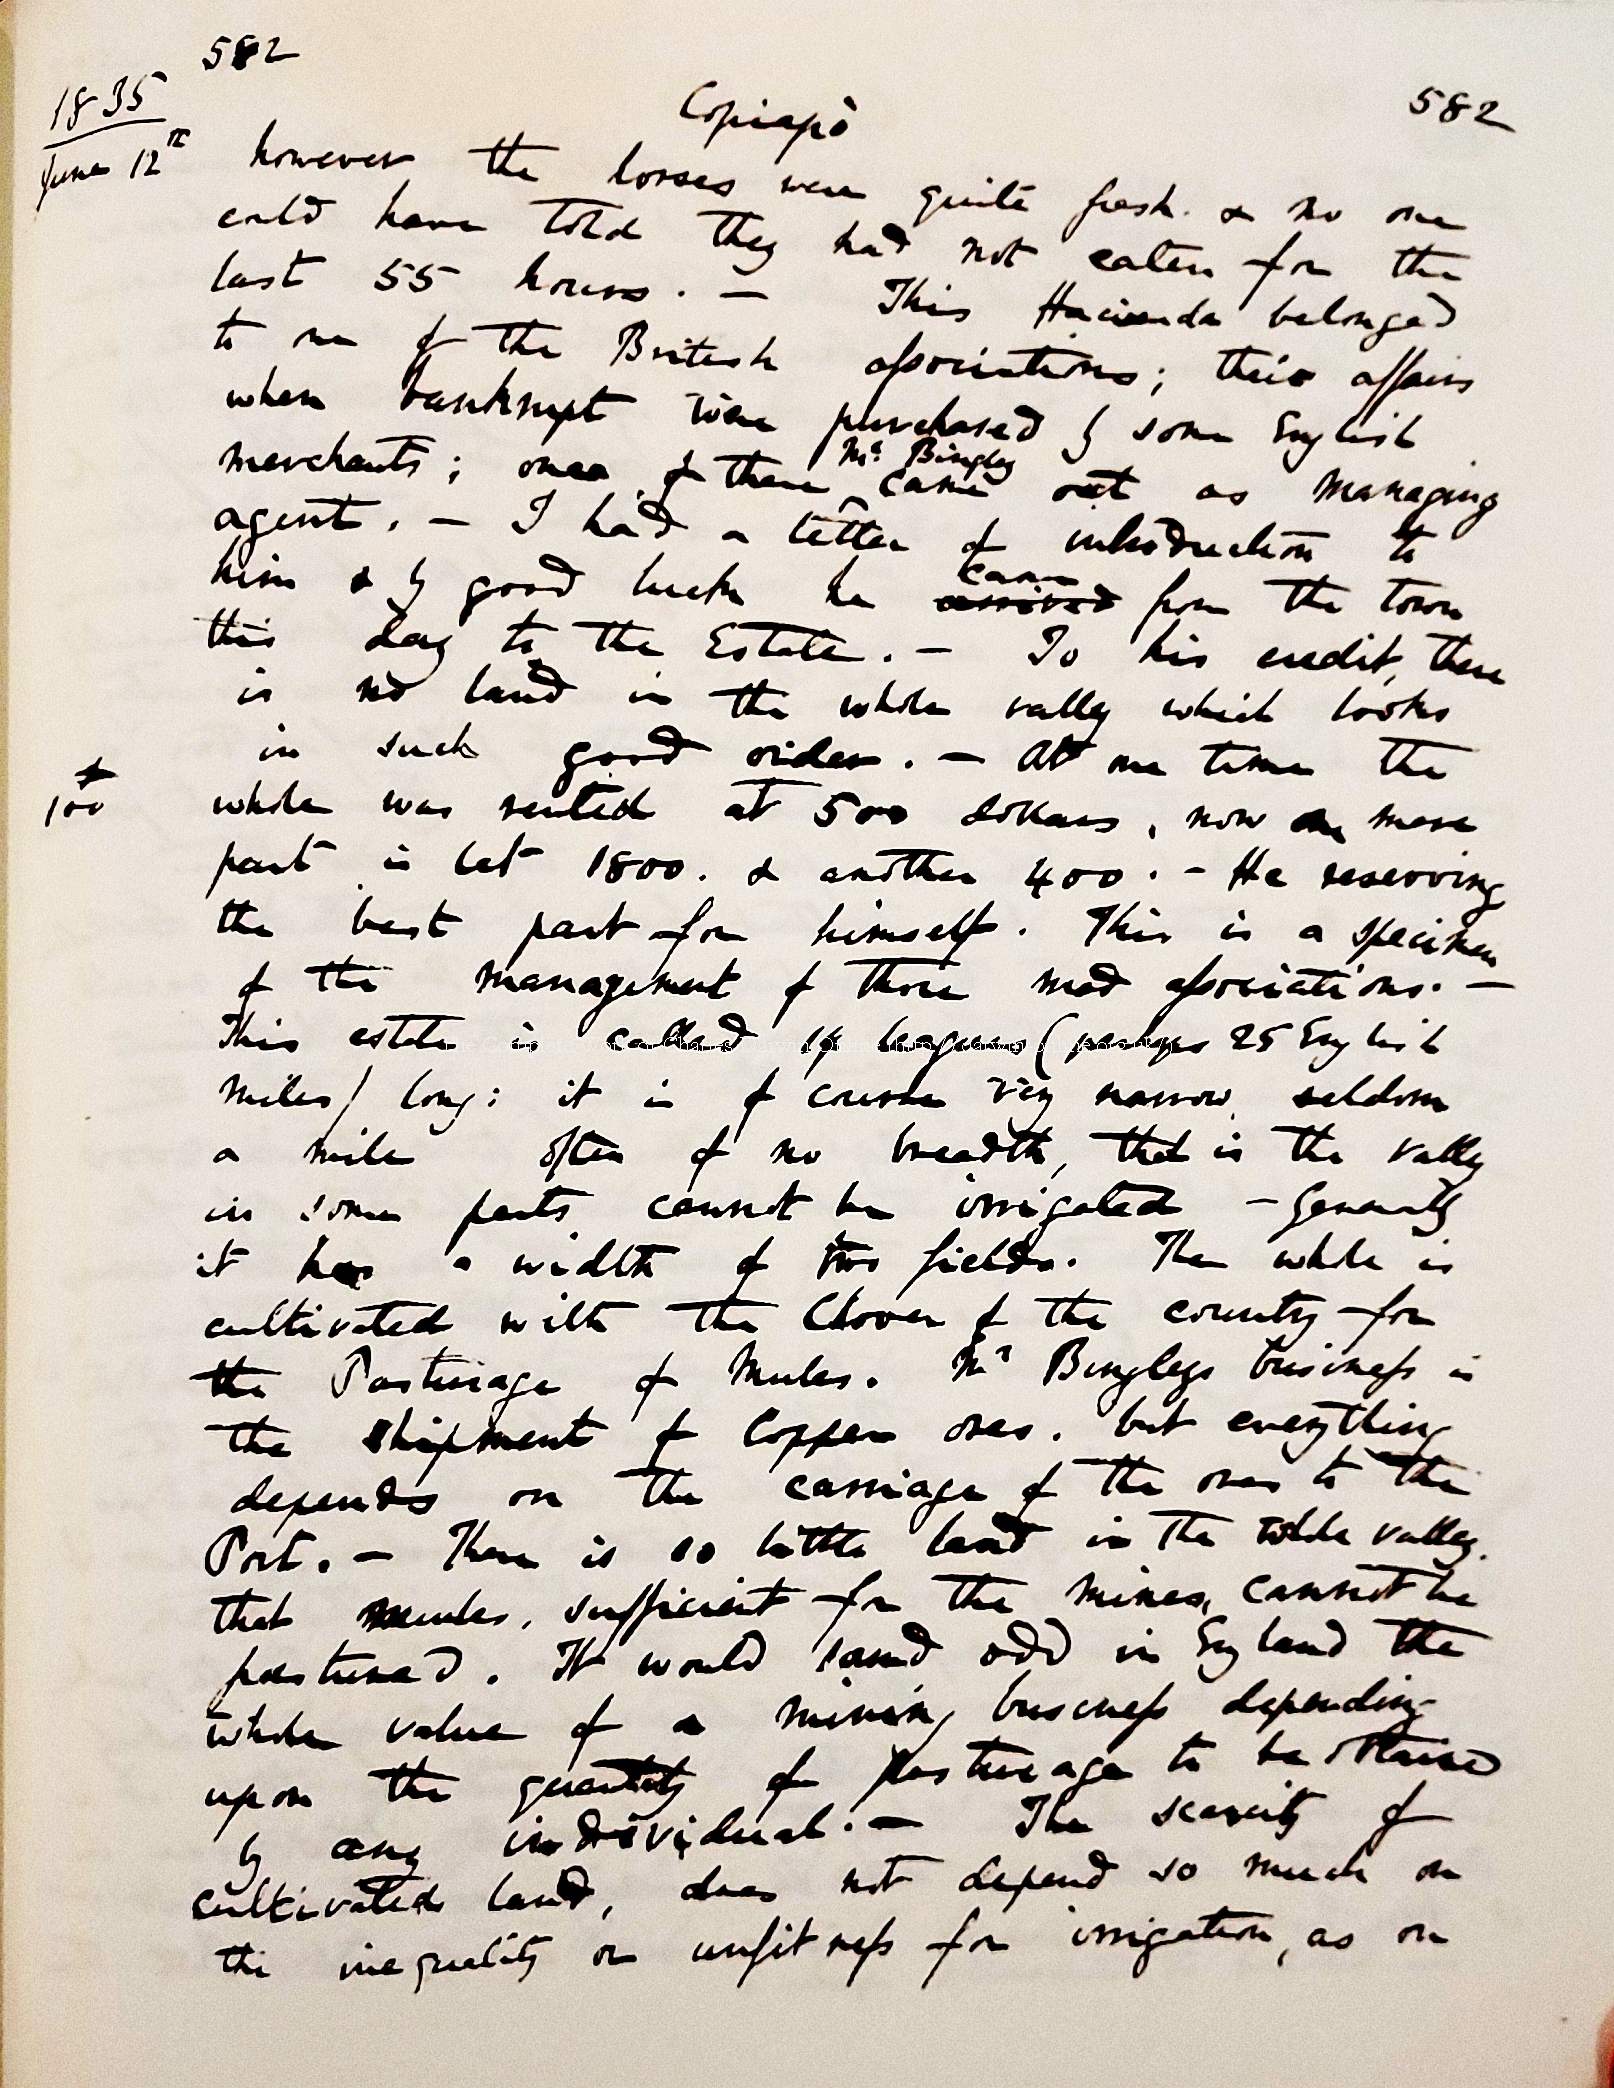 582
1835
Copiapò
582
June 12th
however the horses were quite fresh. & no one
could have told they had not eaten for the
last 55 hours. — This Hacienda belonged
to one of the British associations; their affairs
when bankrupt were purchased by some English
merchants; one of these Mr Bingley came out as managing
agent. — I had a letter of introduction to
him & by good luck he arrived came from the town
this day to the Estate. — To his credit, there
is no land in the whole valley which looks
in such good order. — At one time the
whole was rented at 500 dollars, now one mere
+
100
part is let 1800. & another 400. — He reserving
the best part for himself. This is a specimen
of the management of those mad associations. —
This estate is called leagues (perhaps 25 English
miles) long: it is of course very narrow, seldom
a mile often of no breadth, that is the valley
in some parts cannot be irrigated — Generally
it has a width of two fields. The whole is
cultivated with the Clover of the country for
the Pasturage of Mules. Mr Bingleys business is
the shipment of Copper ores. but everything
depends on the carriage of the ores to the
Port. — There is so little land in the whole valley.
that mules, sufficient for the mines, cannot be
pastured. It would sound odd in England the
whole value of a mining business depending
upon the quantity of pasturage to be obtained
by any individual. — The scarcity of
cultivated land, does not depend so much on
the inequality or unfitness for irrigation, as on